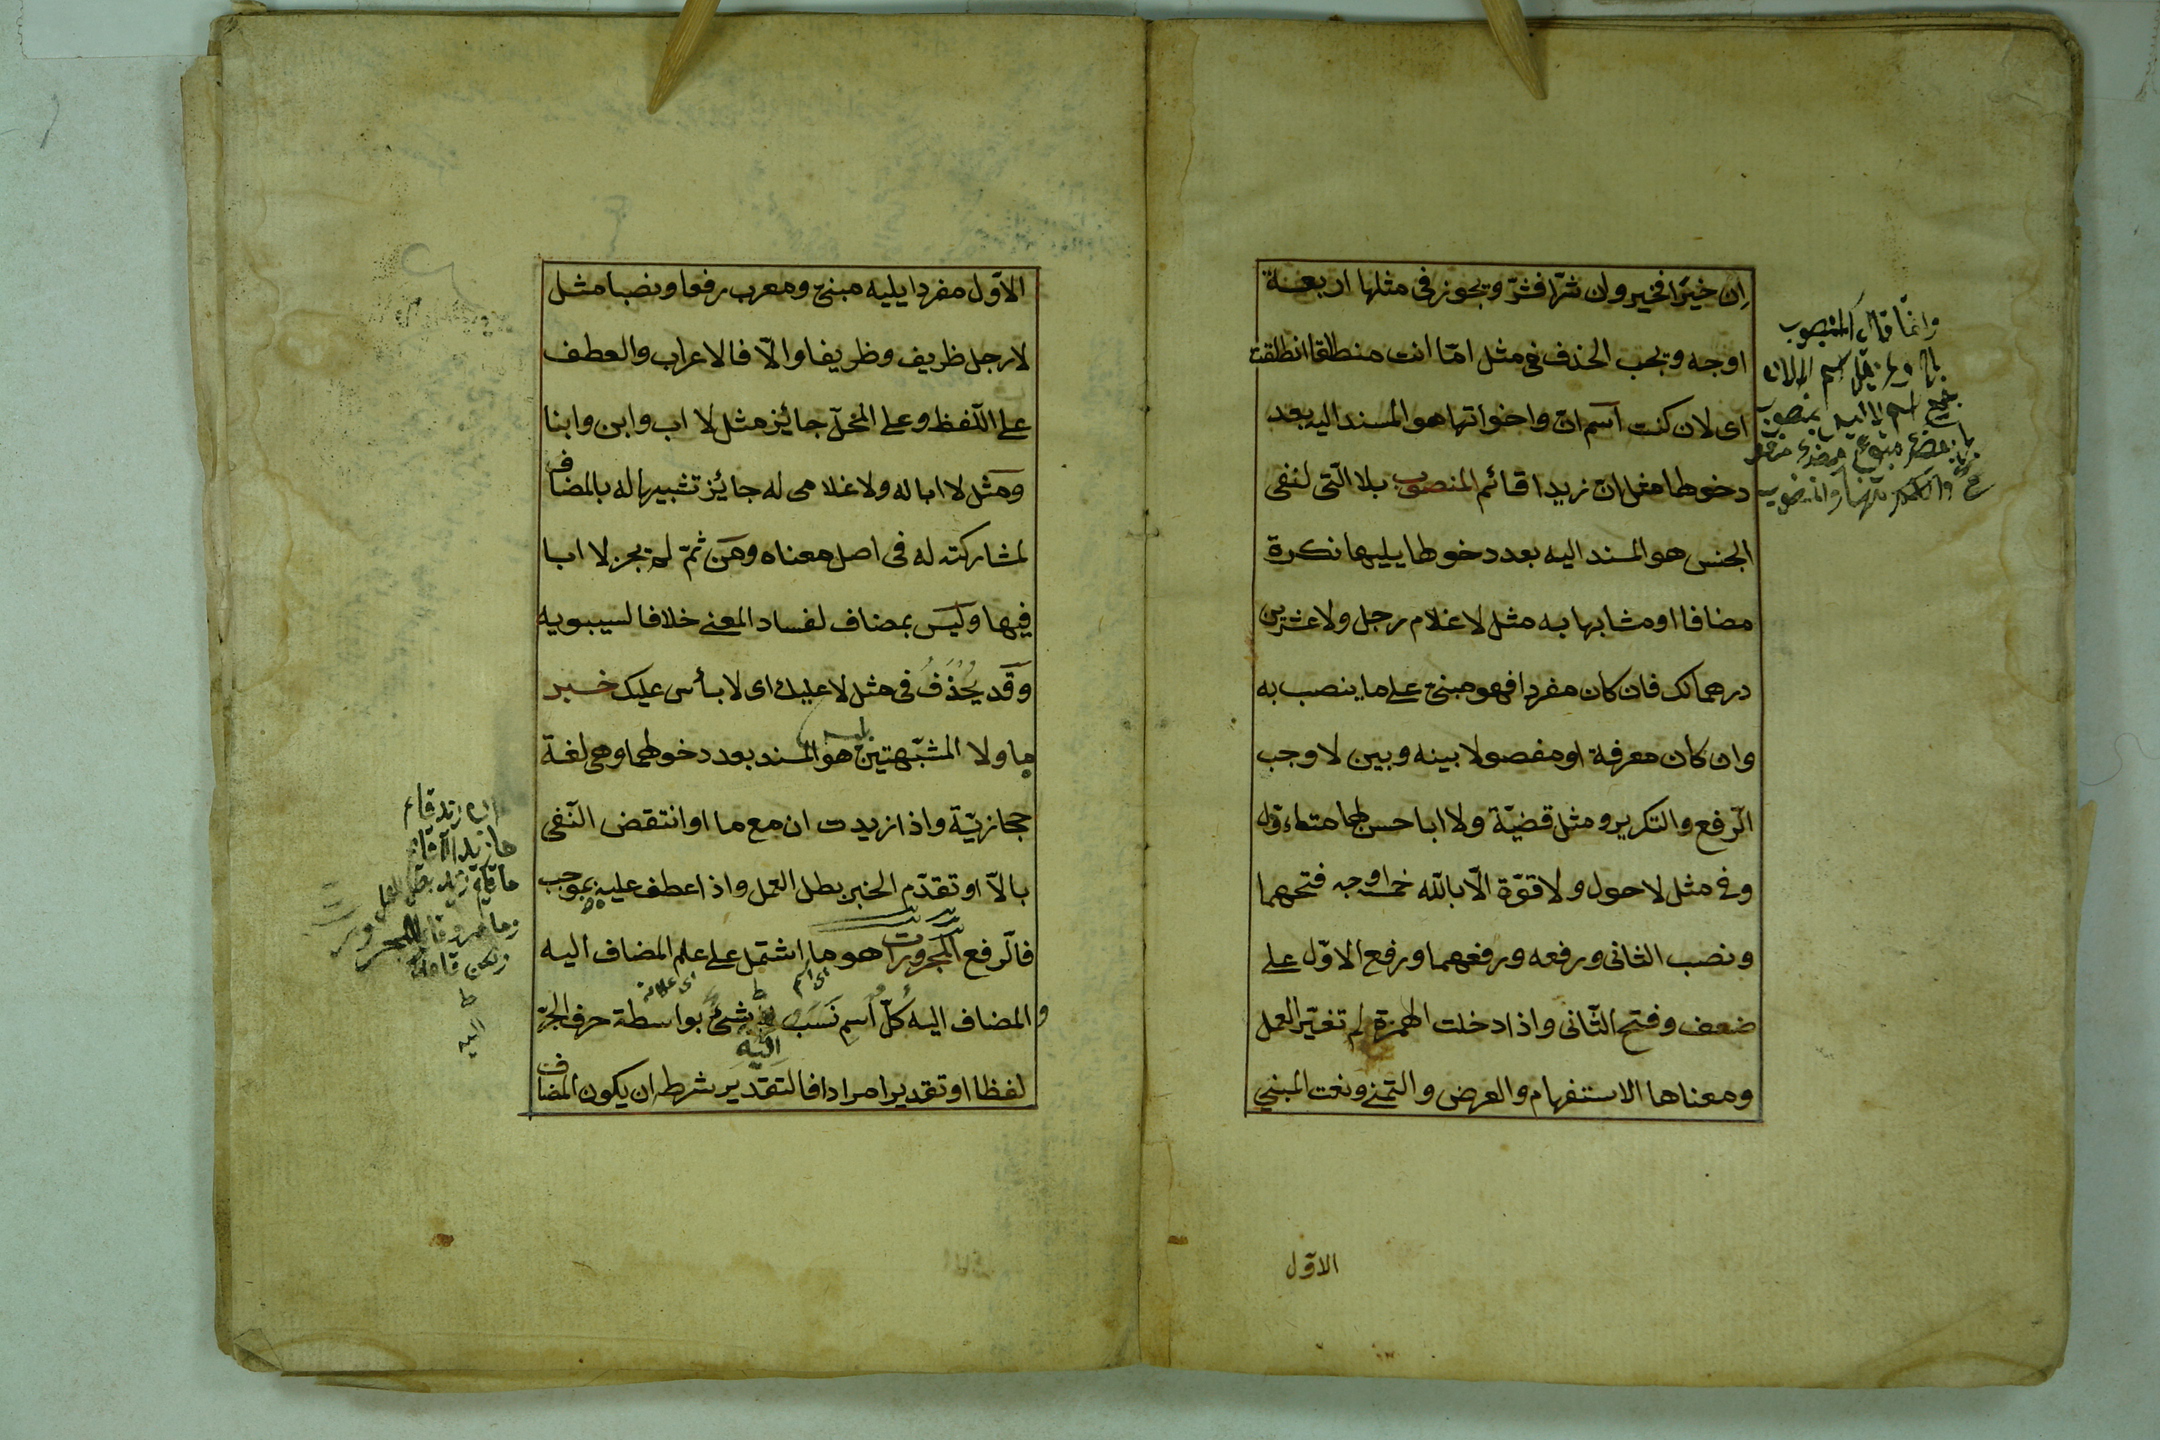 ان خيرا فخير وان شرا فشرّ ويجوز في مثلها اربعة
اوجه ويجب الحذف في مثل امّا انت منطلقا انطلقت
اى لان كنت اسم انّ واخواتها هو المسند اليه بعد
دخولها مثل انّ زيدا قائم المنصوب بلا الّتى لنفى
الجنس هو المسند اليه بعد دخولها يليها نكرة
مضافا او مشابها به مثل لا غلام رجل ولا عشرين
درهما لك فان كان مفردا فهو مبنىّ على ما ينصب به
وان كان معرفة او مفصولا بينه وبين لا وجب
الرّفع والتكرير ومثل قضيّة ولا ابا حسن لها متاءوّل
وفى مثل لا حول ولا قوّة الّا بالله خمسة اوجه فتحهما
ونصب الثانى ورفعه ورفعهما ورفع الاوّل على
ضعف وفتح الثّانى واذا دخلت الهمزة لم تغيّر العمل
ومعناها الاستفهام والعرض والتمنى ونعت المبني
الاوّل
وانما قال المنصوب
الاوّل مفردا يليه مبنىّ ومعرب رفعا ونصبا مثل
لا رجل ظريف وظريفا والّا فالاعراب والعطف
على اللّفظ وعلى المحلّ جائز مثل لا اب وابن وابنا
ومثل لا ابا له ولا غلامى له جائز تشبيها له بالمضاف
لمشاركته له فى اصل معناه ومن ثمّ لم يجز لا ابا
فيها وليس بمضاف لفساد المعنى خلافا لسيبويه
وقد يُحْذَفُ فى مثل لا عليك اى لا بأس عليك خبر
ما ولا المشبّهتين بليس هو المسند بعد دخولهما وهى لغة
حجازيّة واذا زيدت ان مع ما او انتقض النّفى
بالّا او تقدّم الخبر بطل العمل واذا عطف عليه بموجب
فالرفع المجرورات هو ما اشتمل على علم المضاف اليه
والمضاف اليه كُلّ اسم نَسَب اليه شئ بواسطة حرف الجرّ
لفظا او تقديرا مرادا فالتقدير شرطه ان يكون المضاف
اى اسم
اى علامة
ان زيد قائم
ما زيد الا قائم
ما قائم زيد بطل العمل
اليه